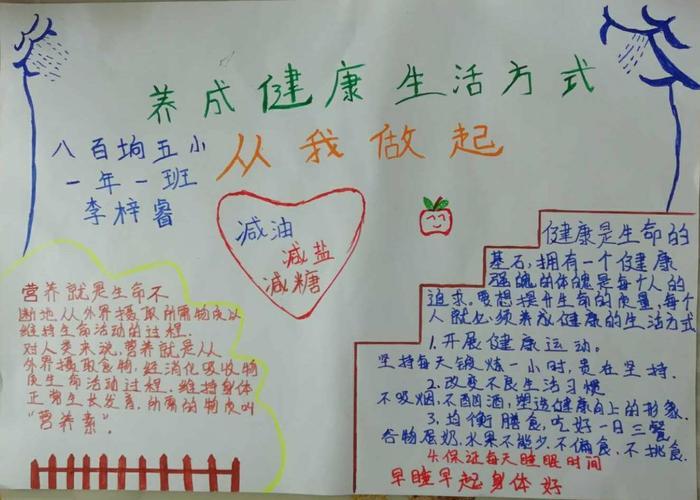 养成健康生活方式
从我做起
八百垧五小
一年一班
李梓睿
减油
减盐
减糖
营养就是生命不
断地从外界摄取所需物质以
维持生命活动的过程.
对人类来说,营养就是从
外界摄取食物,经消化吸收物
质生命活动过程.维持身体
正常生长发育,所需的物质叫
"营养素".
健康是生命的
基石,拥有一个健康
强魄的体魄是每个人的
追求.要想提升生命的质量,每个
人就必须养成健康的生活方式
1.开展健康运动。
坚持每天锻炼一小时,贵在坚持.
2.改变不良生活习惯
不吸烟,不酗酒,塑造健康向上的形象.
3.均衡膳食,吃好一日三餐
谷物蛋奶,水果不能少,不偏食,不挑食.
4.保证每天睡眠时间
早睡早起身体好